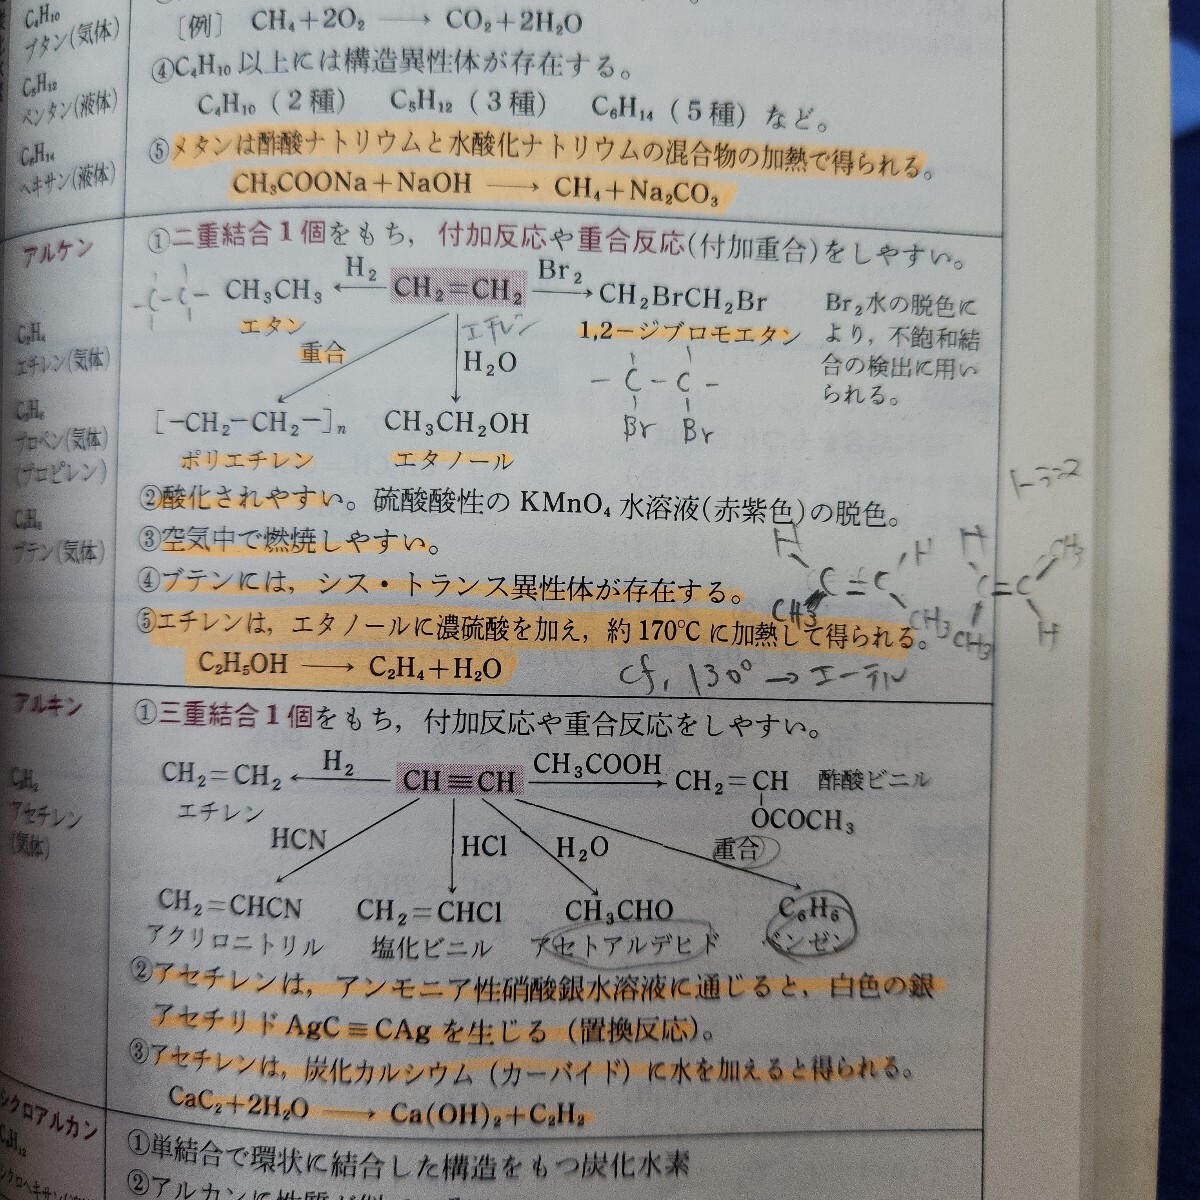 C₄H₁₀
ブタン(気体)
C₅H₁₂
ペンタン(液体)
C₆H₁₄
ヘキサン(液体)
［例］ CH₄+2O₂ ⟶ CO₂+2H₂O
④C₄H₁₀ 以上には構造異性体が存在する。
C₄H₁₀（2種） C₅H₁₂（3種） C₆H₁₄（5種）など。
⑤メタンは酢酸ナトリウムと水酸化ナトリウムの混合物の加熱で得られる。
CH₃COONa+NaOH ⟶ CH₄+Na₂CO₃
アルケン
C₂H₄
エチレン(気体)
C₃H₆
プロペン(気体)
(プロピレン)
C₄H₈
ブテン(気体)
①二重結合1個をもち，付加反応や重合反応(付加重合)をしやすい。
-C-C-
CH₃CH₃ ⟵ H₂ CH₂=CH₂ Br₂ ⟶ CH₂BrCH₂Br
エタン エチレン 1,2-ジブロモエタン
Br₂水の脱色に
より，不飽和結
合の検出に用い
られる。
重合 H₂O
-C-C-
Br Br
[-CH₂-CH₂-]ₙ CH₃CH₂OH
ポリエチレン エタノール
②酸化されやすい。硫酸酸性の KMnO₄ 水溶液(赤紫色)の脱色。
③空気中で燃焼しやすい。
④ブテンには，シス・トランス異性体が存在する。
トランス
H H H CH₃
C=C C=C
CH₃ CH₃ CH₃ H
⑤エチレンは，エタノールに濃硫酸を加え，約170℃に加熱して得られる。
C₂H₅OH ⟶ C₂H₄+H₂O
cf, 130° → エーテル
アルキン
C₂H₂
アセチレン
(気体)
①三重結合1個をもち，付加反応や重合反応をしやすい。
CH₂=CH₂ ⟵ H₂ CH≡CH CH₃COOH ⟶ CH₂=CH 酢酸ビニル
エチレン OCOCH₃
HCN HCl H₂O 重合
CH₂=CHCN CH₂=CHCl CH₃CHO C₆H₆
アクリロニトリル 塩化ビニル アセトアルデヒド ベンゼン
②アセチレンは，アンモニア性硝酸銀水溶液に通じると，白色の銀
アセチリド AgC≡CAg を生じる（置換反応）。
③アセチレンは，炭化カルシウム（カーバイド）に水を加えると得られる。
CaC₂+2H₂O ⟶ Ca(OH)₂+C₂H₂
シクロアルカン
①単結合で環状に結合した構造をもつ炭化水素